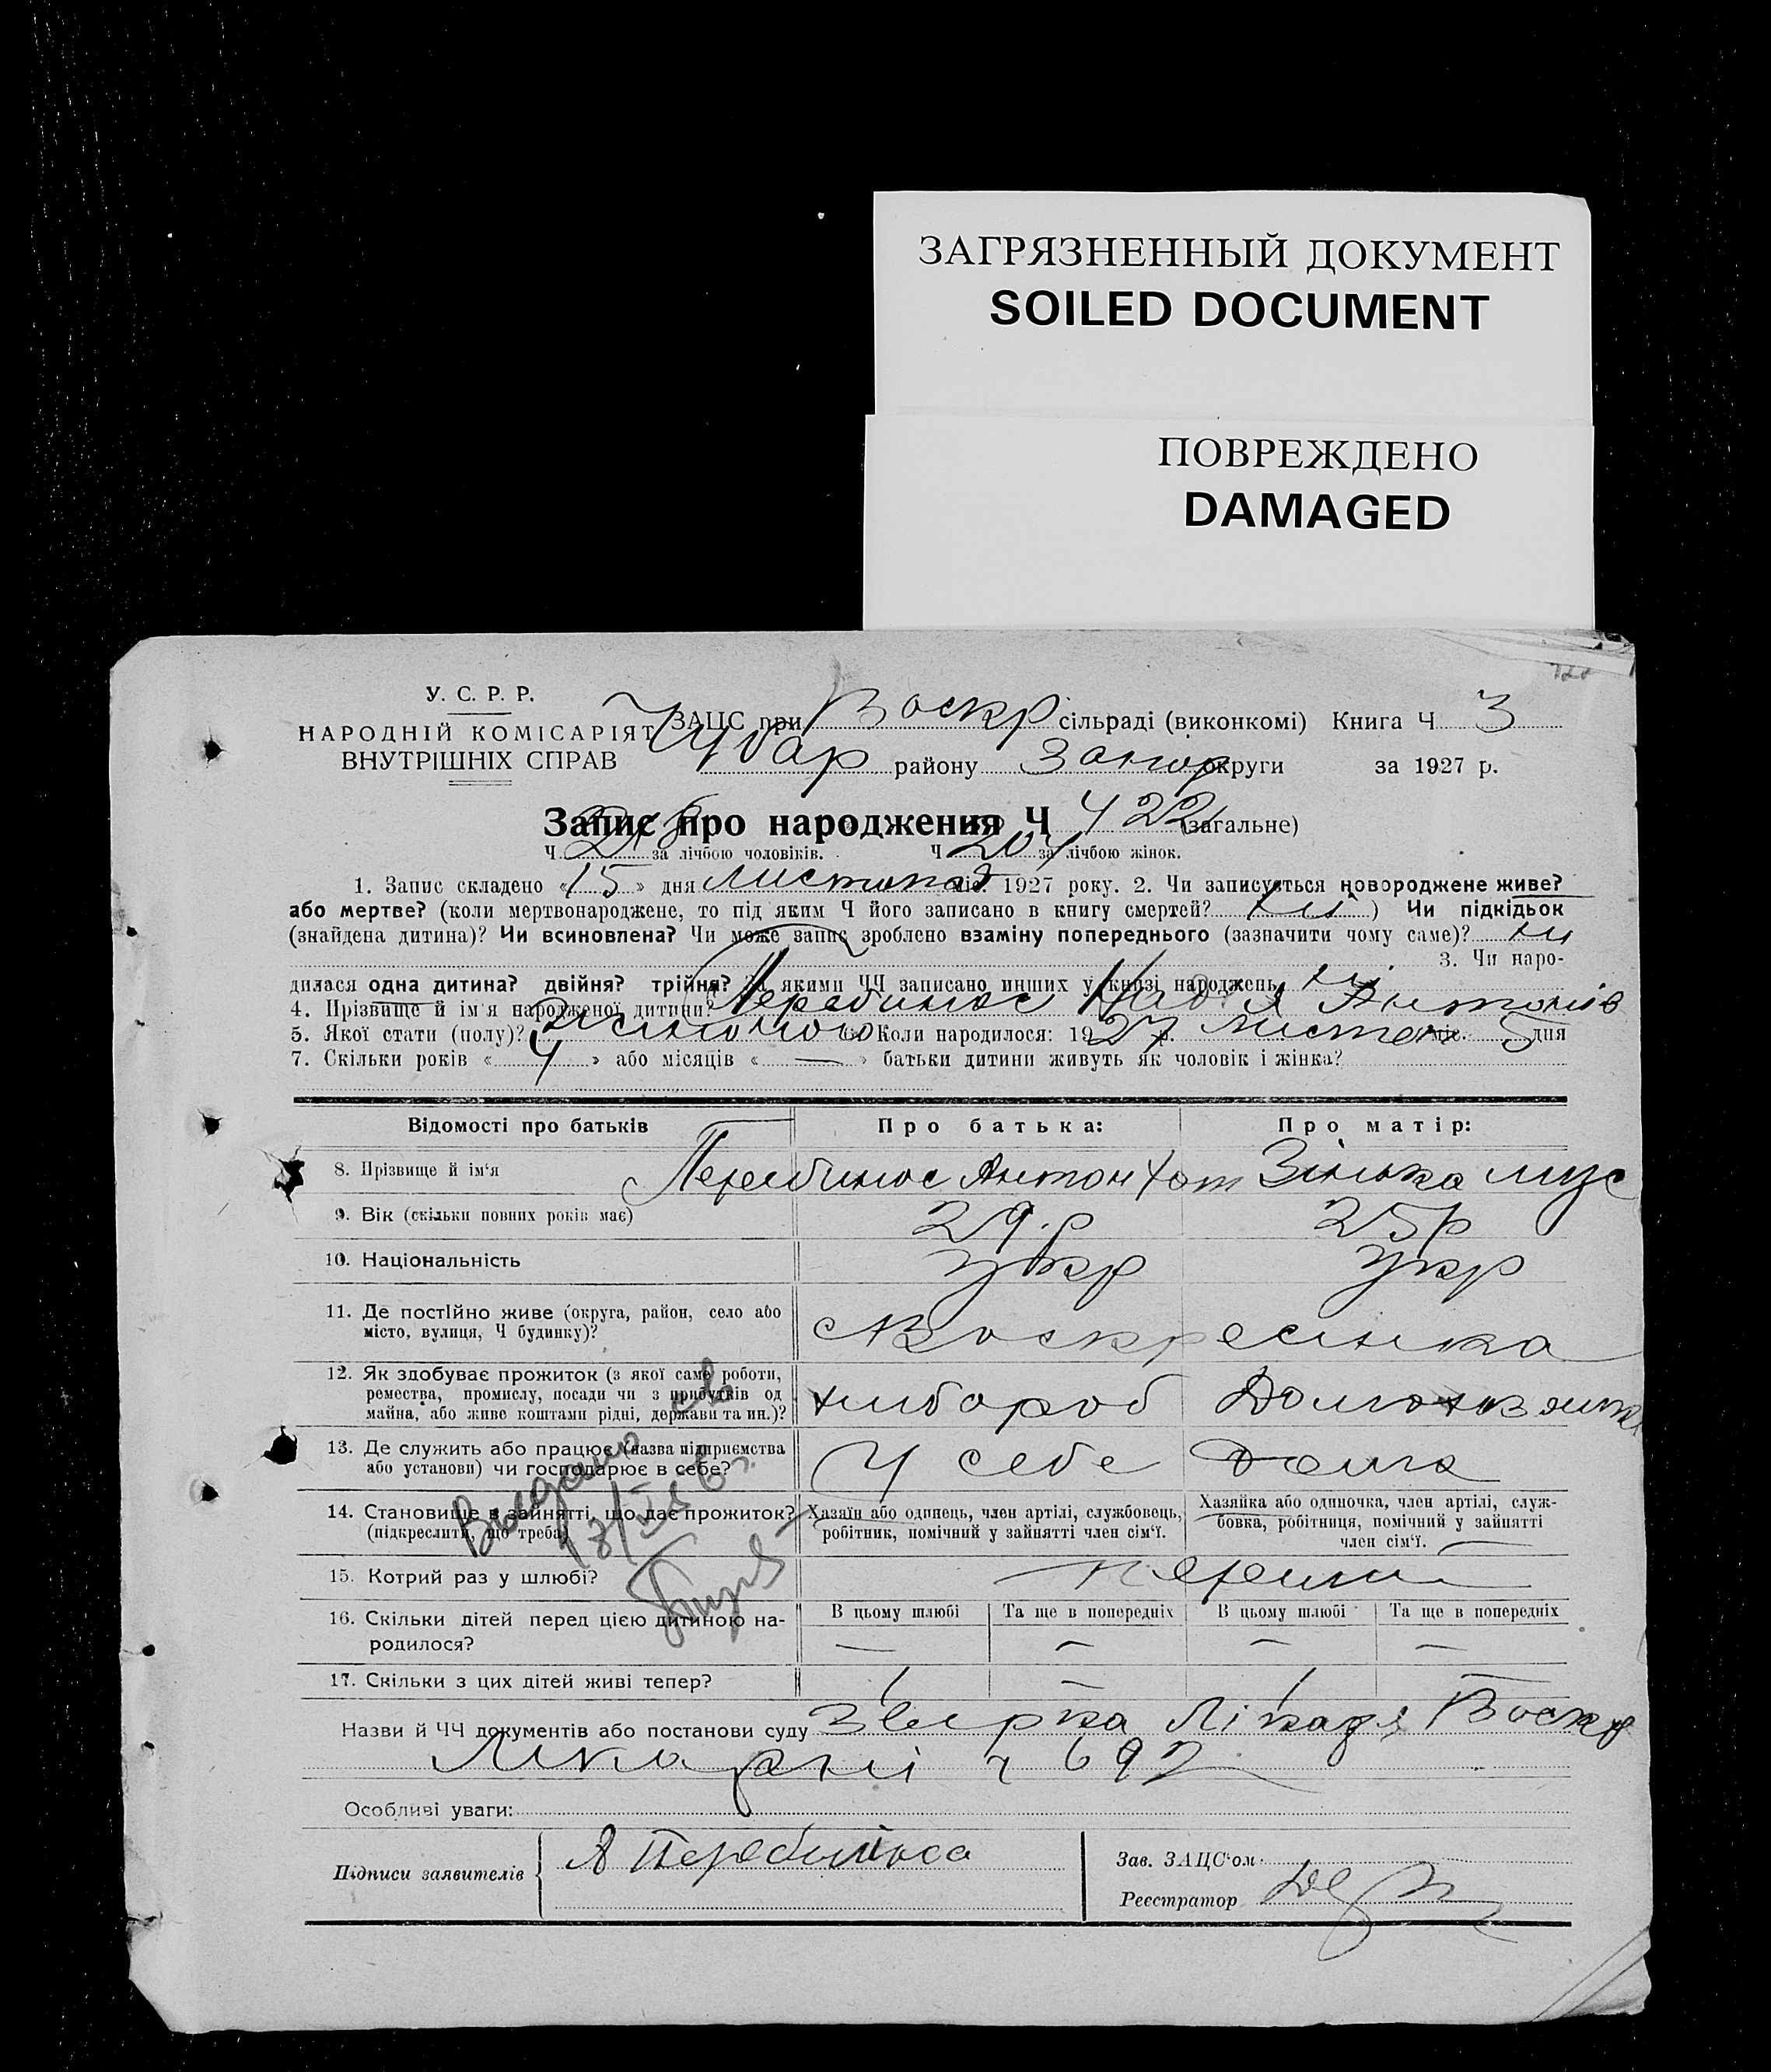 ЗАГРЯЗНЕННЫЙ ДОКУМЕНТ
SOILED DOCUMENT
ПОВРЕЖДЕНО
DAMAGED
У. С. Р. Р.
НАРОДНІЙ КОМІСАРІЯТ
ВНУТРІШНІХ СПРАВ
ЗАЦС при Воскр сільраді (виконкомі) Книга Ч 3
Чубар району Запор округи за 1927 р.
Запис про народження Ч 422 (загальне)
Ч за лічбою чоловіків. Ч 204 за лічбою жінок.
1. Запис складено «15» дня листопад міс. 1927 року. 2. Чи записується новороджене живе?
або мертве? (коли мертвонароджене, то під яким Ч його записано в книгу смертей? ні ) Чи підкідьок
(знайдена дитина)? Чи всиновлена? Чи може запис зроблено взаміну попереднього (зазначити чому саме)? ні
3. Чи наро-
дилася одна дитина? двійня? трійня? За якими ЧЧ записано инших у книзі народжень ні
4. Прізвище й ім'я народженої дитини? Перебинос Надія Антонів
5. Якої стати (полу)? жіночого 6. Коли народилося: 1927 р. листоп міс. 5 дня
7. Скільки років « 4 » або місяців « — » батьки дитини живуть як чоловік і жінка?
Відомості про батьків Про батька: Про матір:
8. Прізвище й ім'я Перебинос Антон Хом Зінька
9. Вік (скільки повних років має) 29 р 25 р
10. Національність укр укр
11. Де постійно живе (округа, район, село або
місто, вулиця, Ч будинку)? с Воскресенка
12. Як здобуває прожиток (з якої саме роботи,
ремества, промислу, посади чи з прибутків од
майна, або живе коштами рідні, держави та ин.)? хлібороб
13. Де служить або працює (назва підприємства
або установи) чи господарює в себе? У себе Дома
14. Становище в зайнятті, що дає прожиток?
(підкреслити, що треба)
Хазяїн або одинець, член артілі, службовець,
робітник, помічний у зайнятті член сім'ї.
Хазяйка або одиночка, член артілі, служ-
бовка, робітниця, помічний у зайнятті
член сім'ї.
15. Котрий раз у шлюбі? перший
16. Скільки дітей перед цією дитиною на-
родилося?
В цьому шлюбі Та ще в попередніх В цьому шлюбі Та ще в попередніх
— — — —
17. Скільки з цих дітей живі тепер? 1 — 1 —
Назви й ЧЧ документів або постанови суду Воскр
Лікарні ч 692
Особливі уваги:
Підписи заявителів А Перебиноса
Зав. ЗАЦС'ом
Реєстратор